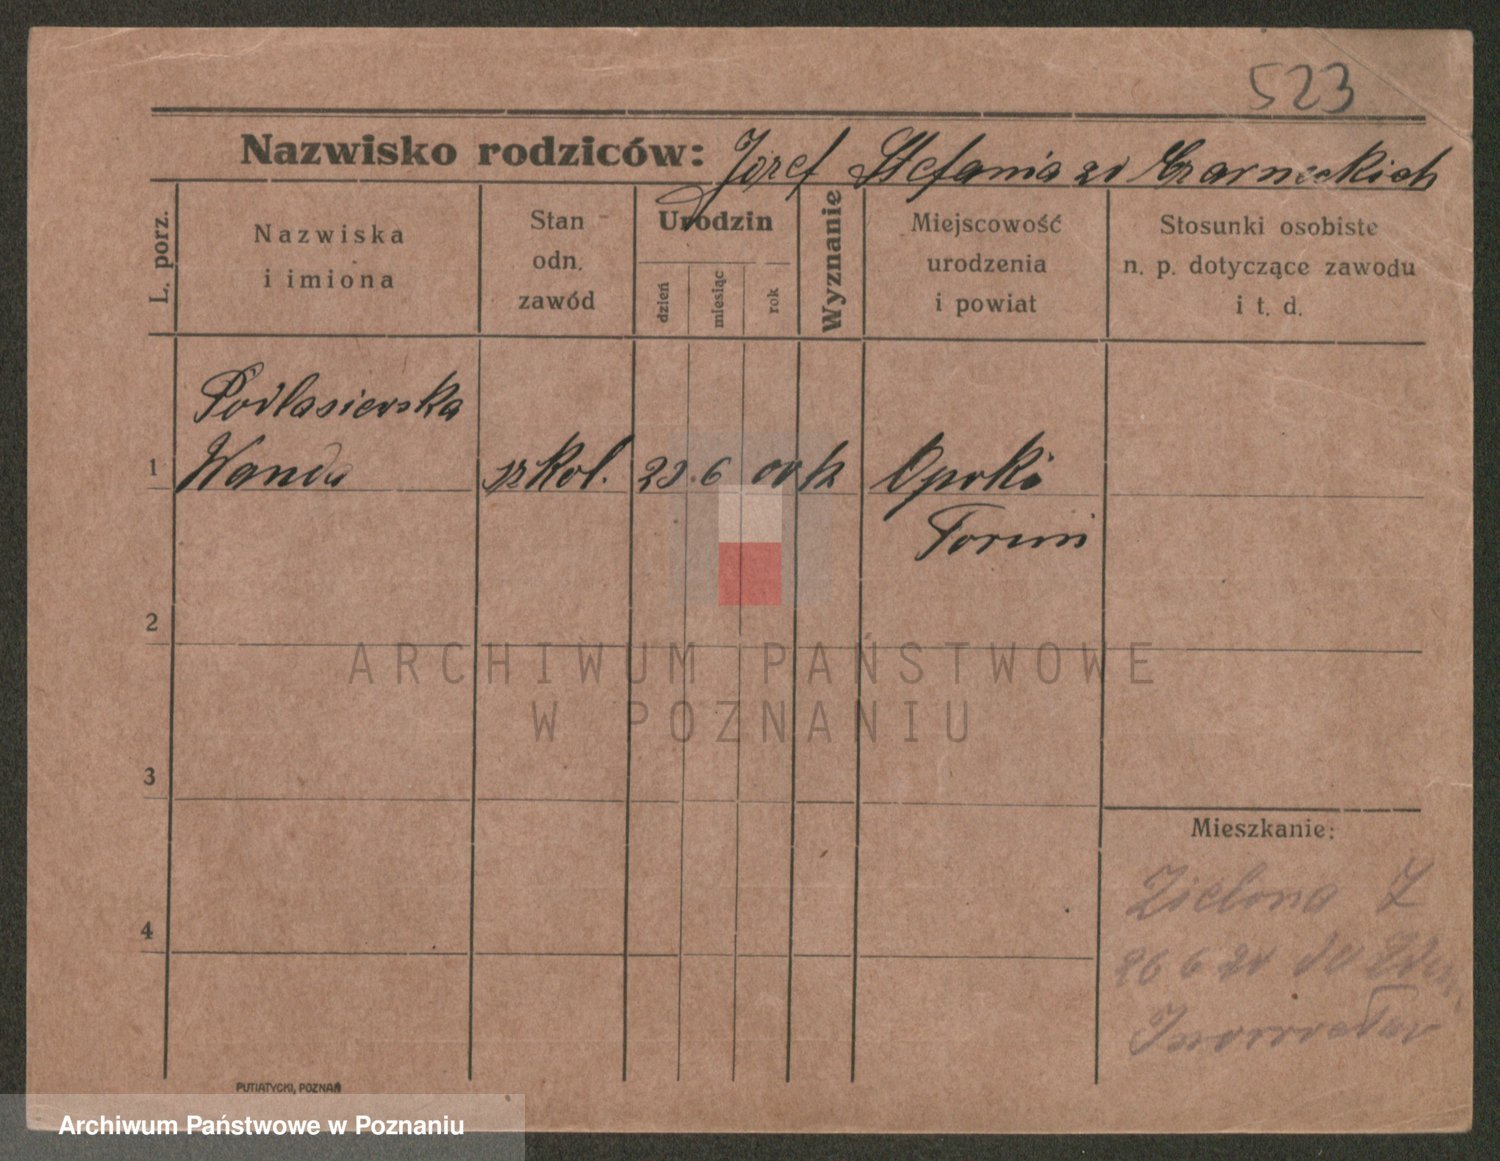 523
Nazwisko rodziców: Józef Stefania zd Czarneckich
L. porz.
Nazwiska
i imiona
Stan
odn.
zawód
Urodzin
dzień
miesiąc
rok
Wyznanie
Miejscowość
urodzenia
i powiat
Stosunki osobiste
n. p. dotyczące zawodu
i t. d.
Podlasiewska
1 Wanda 6 00 k Opoki
Toruń
2
3
4
Mieszkanie:
Zielona
26 6
Inowrocław
PUTIATYCKI, POZNAŃ
ARCHIWUM PAŃSTWOWE
W POZNANIU
Archiwum Państwowe w Poznaniu